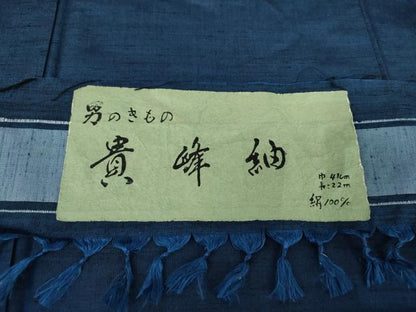 男のきもの
貴峰紬
巾41cm
長:22m
絹100%